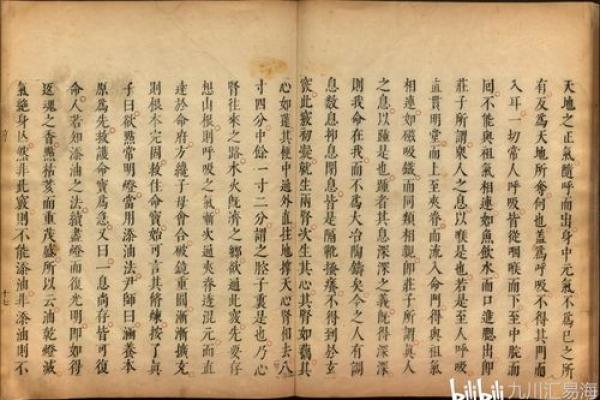 天地之正氣隨呼而出身中元氣不爲己之所
有反爲天地所奪何也盖爲呼吸不得其門而
入耳一切常人呼吸皆從咽喉而下至中脘而
回不能與祖氣相連如魚飲水而口進腮出卽
莊子所謂衆人之息以喉是也若是至人呼吸
直貫明堂而上至夾脊而流入命門得與祖氣
相連如磁吸鐵而同類相親卽莊子所謂眞人
之息以踵是也踵者其息深深之義既得深深
則我命在我而不爲大冶陶鑄矣今之人有調
息數息抑息閉息皆是隔靴搔癢不得到於玄
竅此竅初凝就生兩腎次生其心其腎如藕其
心如蓮其梗中通外直拄地撐天心腎相去八
寸四分中餘一寸二分謂之腔子裏是也乃心
腎往來之路水火既濟之鄉欲通此竅先要存
想山根則呼吸之氣漸次通夾脊透混元而直
達於命府方纔子母會合破鏡重圓漸漸擴充
則根本完固救住命寶始可言其修鍊按了眞
子曰欲點常明燈當用添油法尹師曰涵養本
原爲先救護命寶爲急又曰一息尚存皆可復
命人若知添油之法續盡燈而復光明卽如得
返魂之香點枯荄而重茂盛所以云油乾燈滅
氣絶身亡然非此竅則不能添油非添油則不
十七
bilibili 九川汇易海